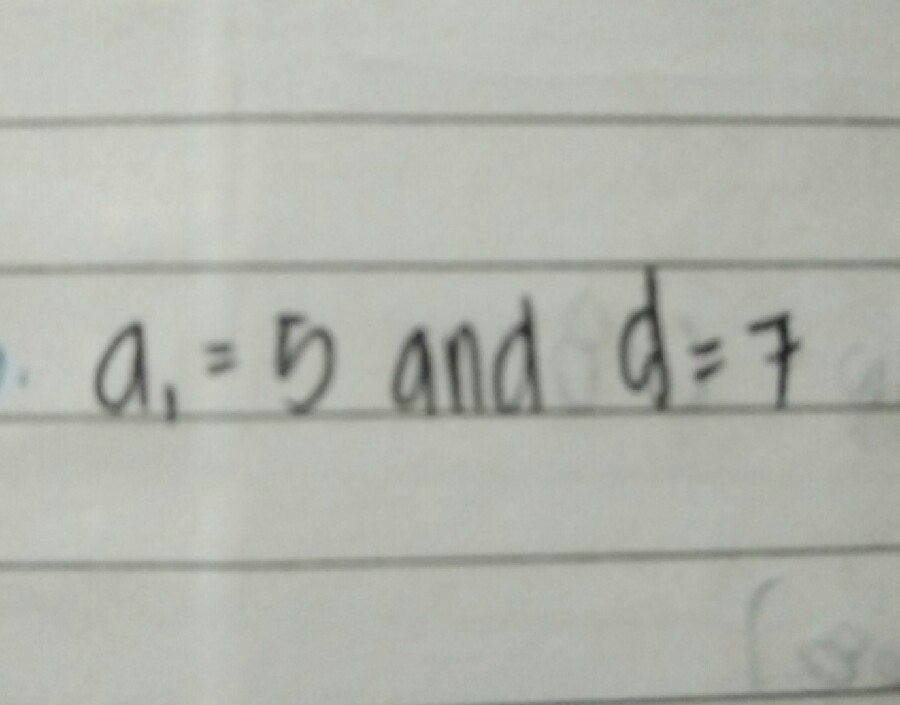 . a₁ = 5 and d = 7